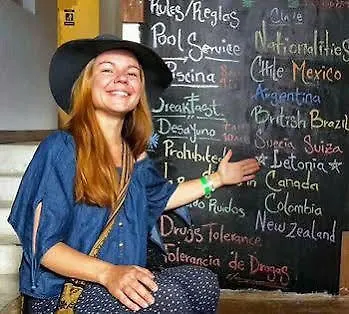 Rules/Reglas
Pool Service
Piscina
Breakfast
Desayuno
Prohibited
Ruidos
Drugs Tolerance
Tolerancia de Drogas
Nationalities
Chile Mexico
Argentina
British Brazil
Suecia Suiza
☆ Letonia ☆
Canada
Colombia
New Zealand